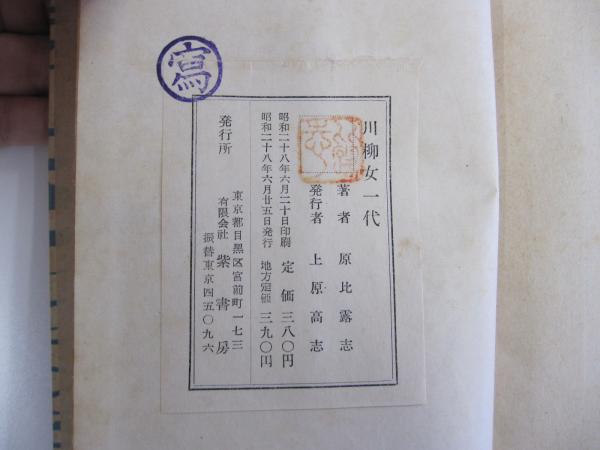 寫
川柳女一代
著者 原比露志
発行者 上原高志
昭和二十八年六月二十日印刷 定価 三八〇円
昭和二十八年六月廿五日発行 地方定価 三九〇円
発行所
東京都目黒区宮前町一七三
有限会社 紫書房
振替東京四五〇九六